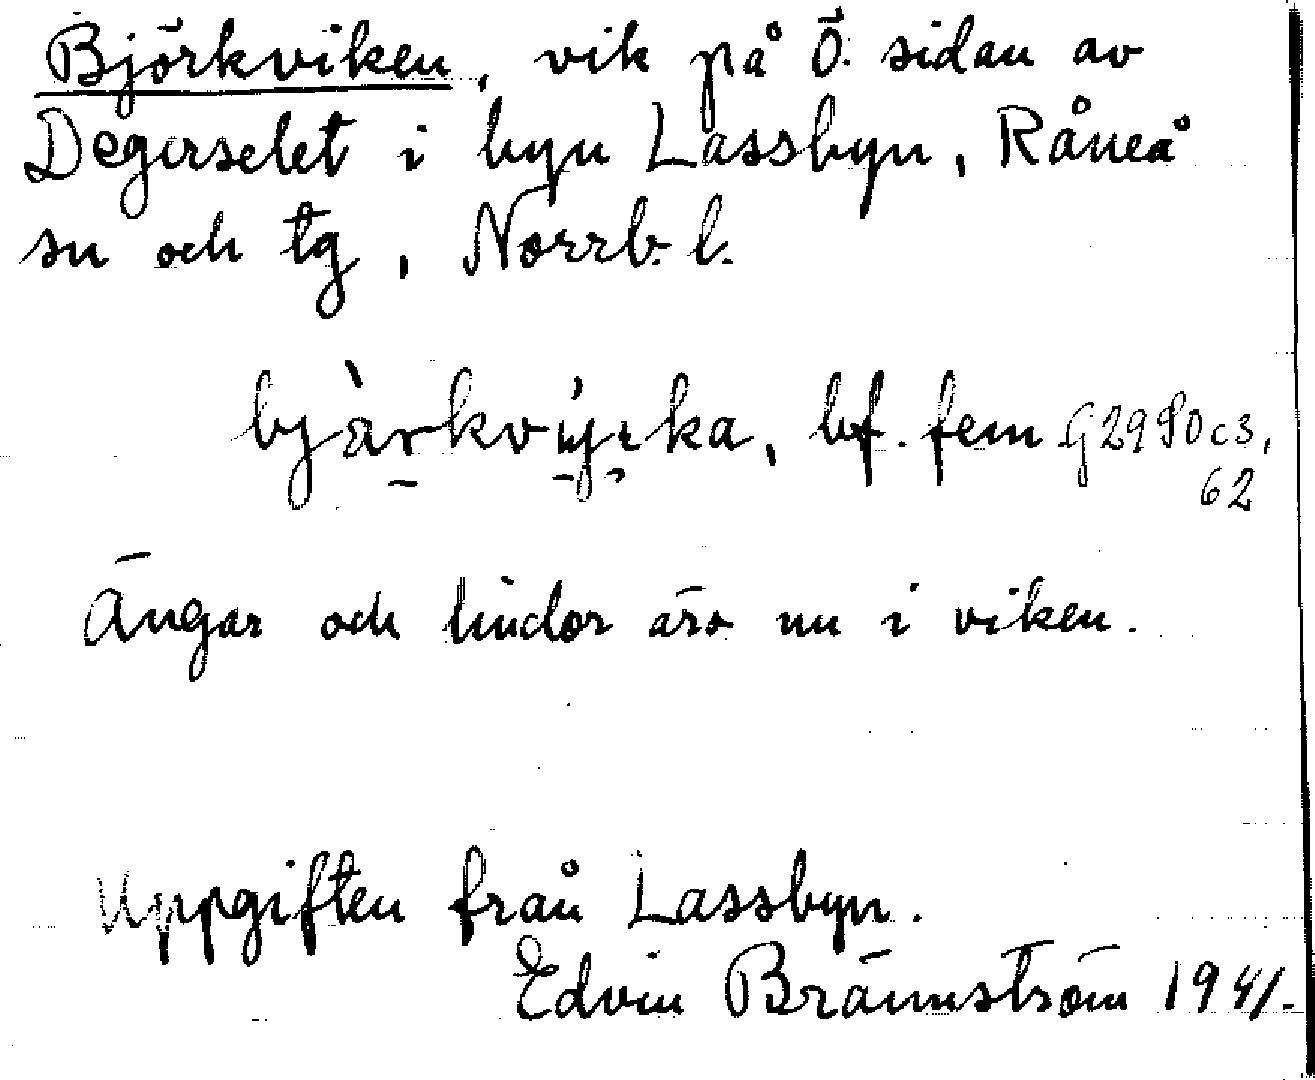 Björkviken, vik på Ö. sidan av
Degerselet i byn Lassbyn, Råneå
sn och tg, Norrb. l.
bf. fem
62
Ängar och lindor äro nu i viken.
Uppgiften från Lassbyn.
Edvin Brännström 1941.